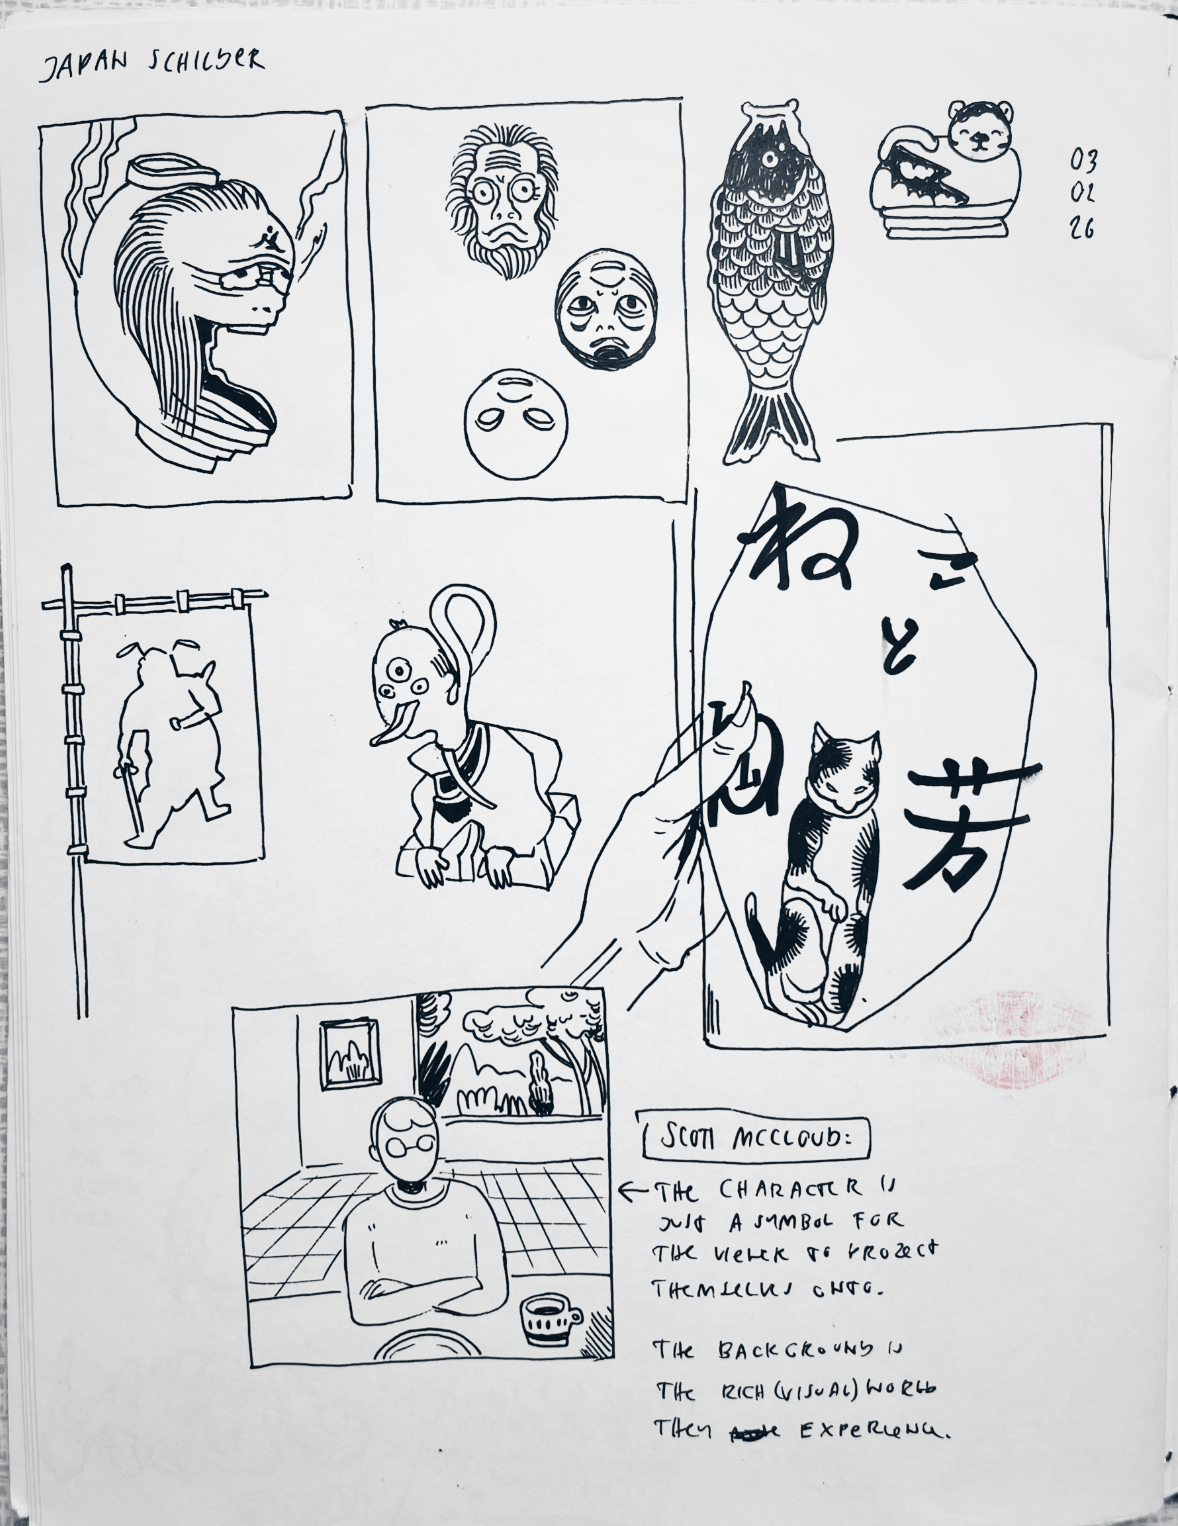 JAPAN SCHILDER
03
02
26
ねこ
と
芳
SCOTT MCCLOUD:
← THE CHARACTER IS
JUST A SYMBOL FOR
THE VIEWER TO PROJECT
THEMSELVES ONTO.
THE BACKGROUND IS
THE RICH (VISUAL) WORLD
THEY EXPERIENCE.